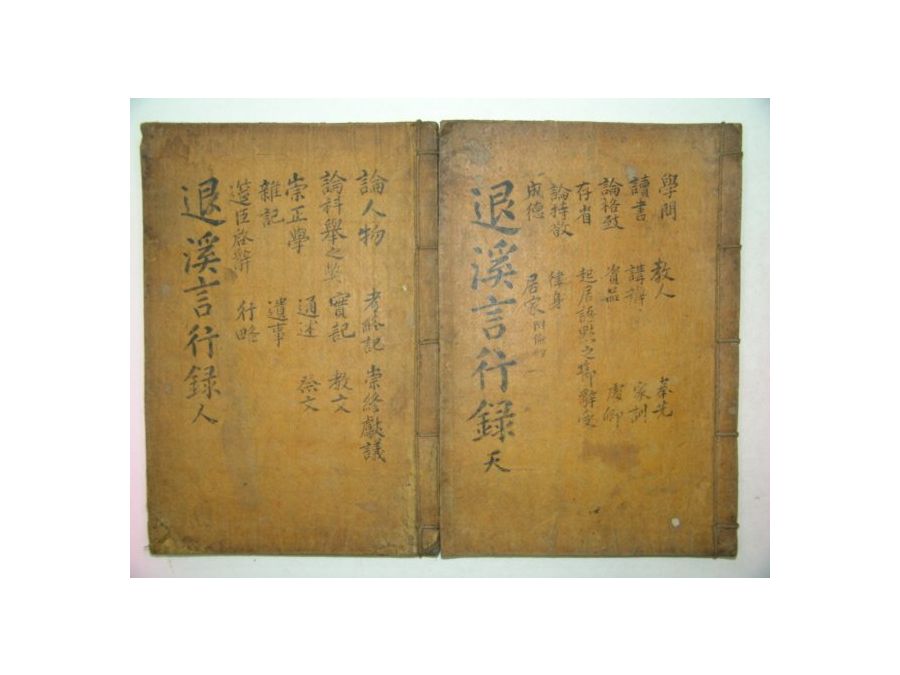 學問 教人 奉先
讀書 講辨 家訓
論格致 資品 處鄕
存省 起居語默之節 辭受
論持敬 律身
成德 居家
退溪言行録 天
論人物 考終記 崇終獻議
論科擧之獘 實記 教文
崇正學 通述 祭文
雜記 遺事
筵臣啓辭 行略
退溪言行録 人